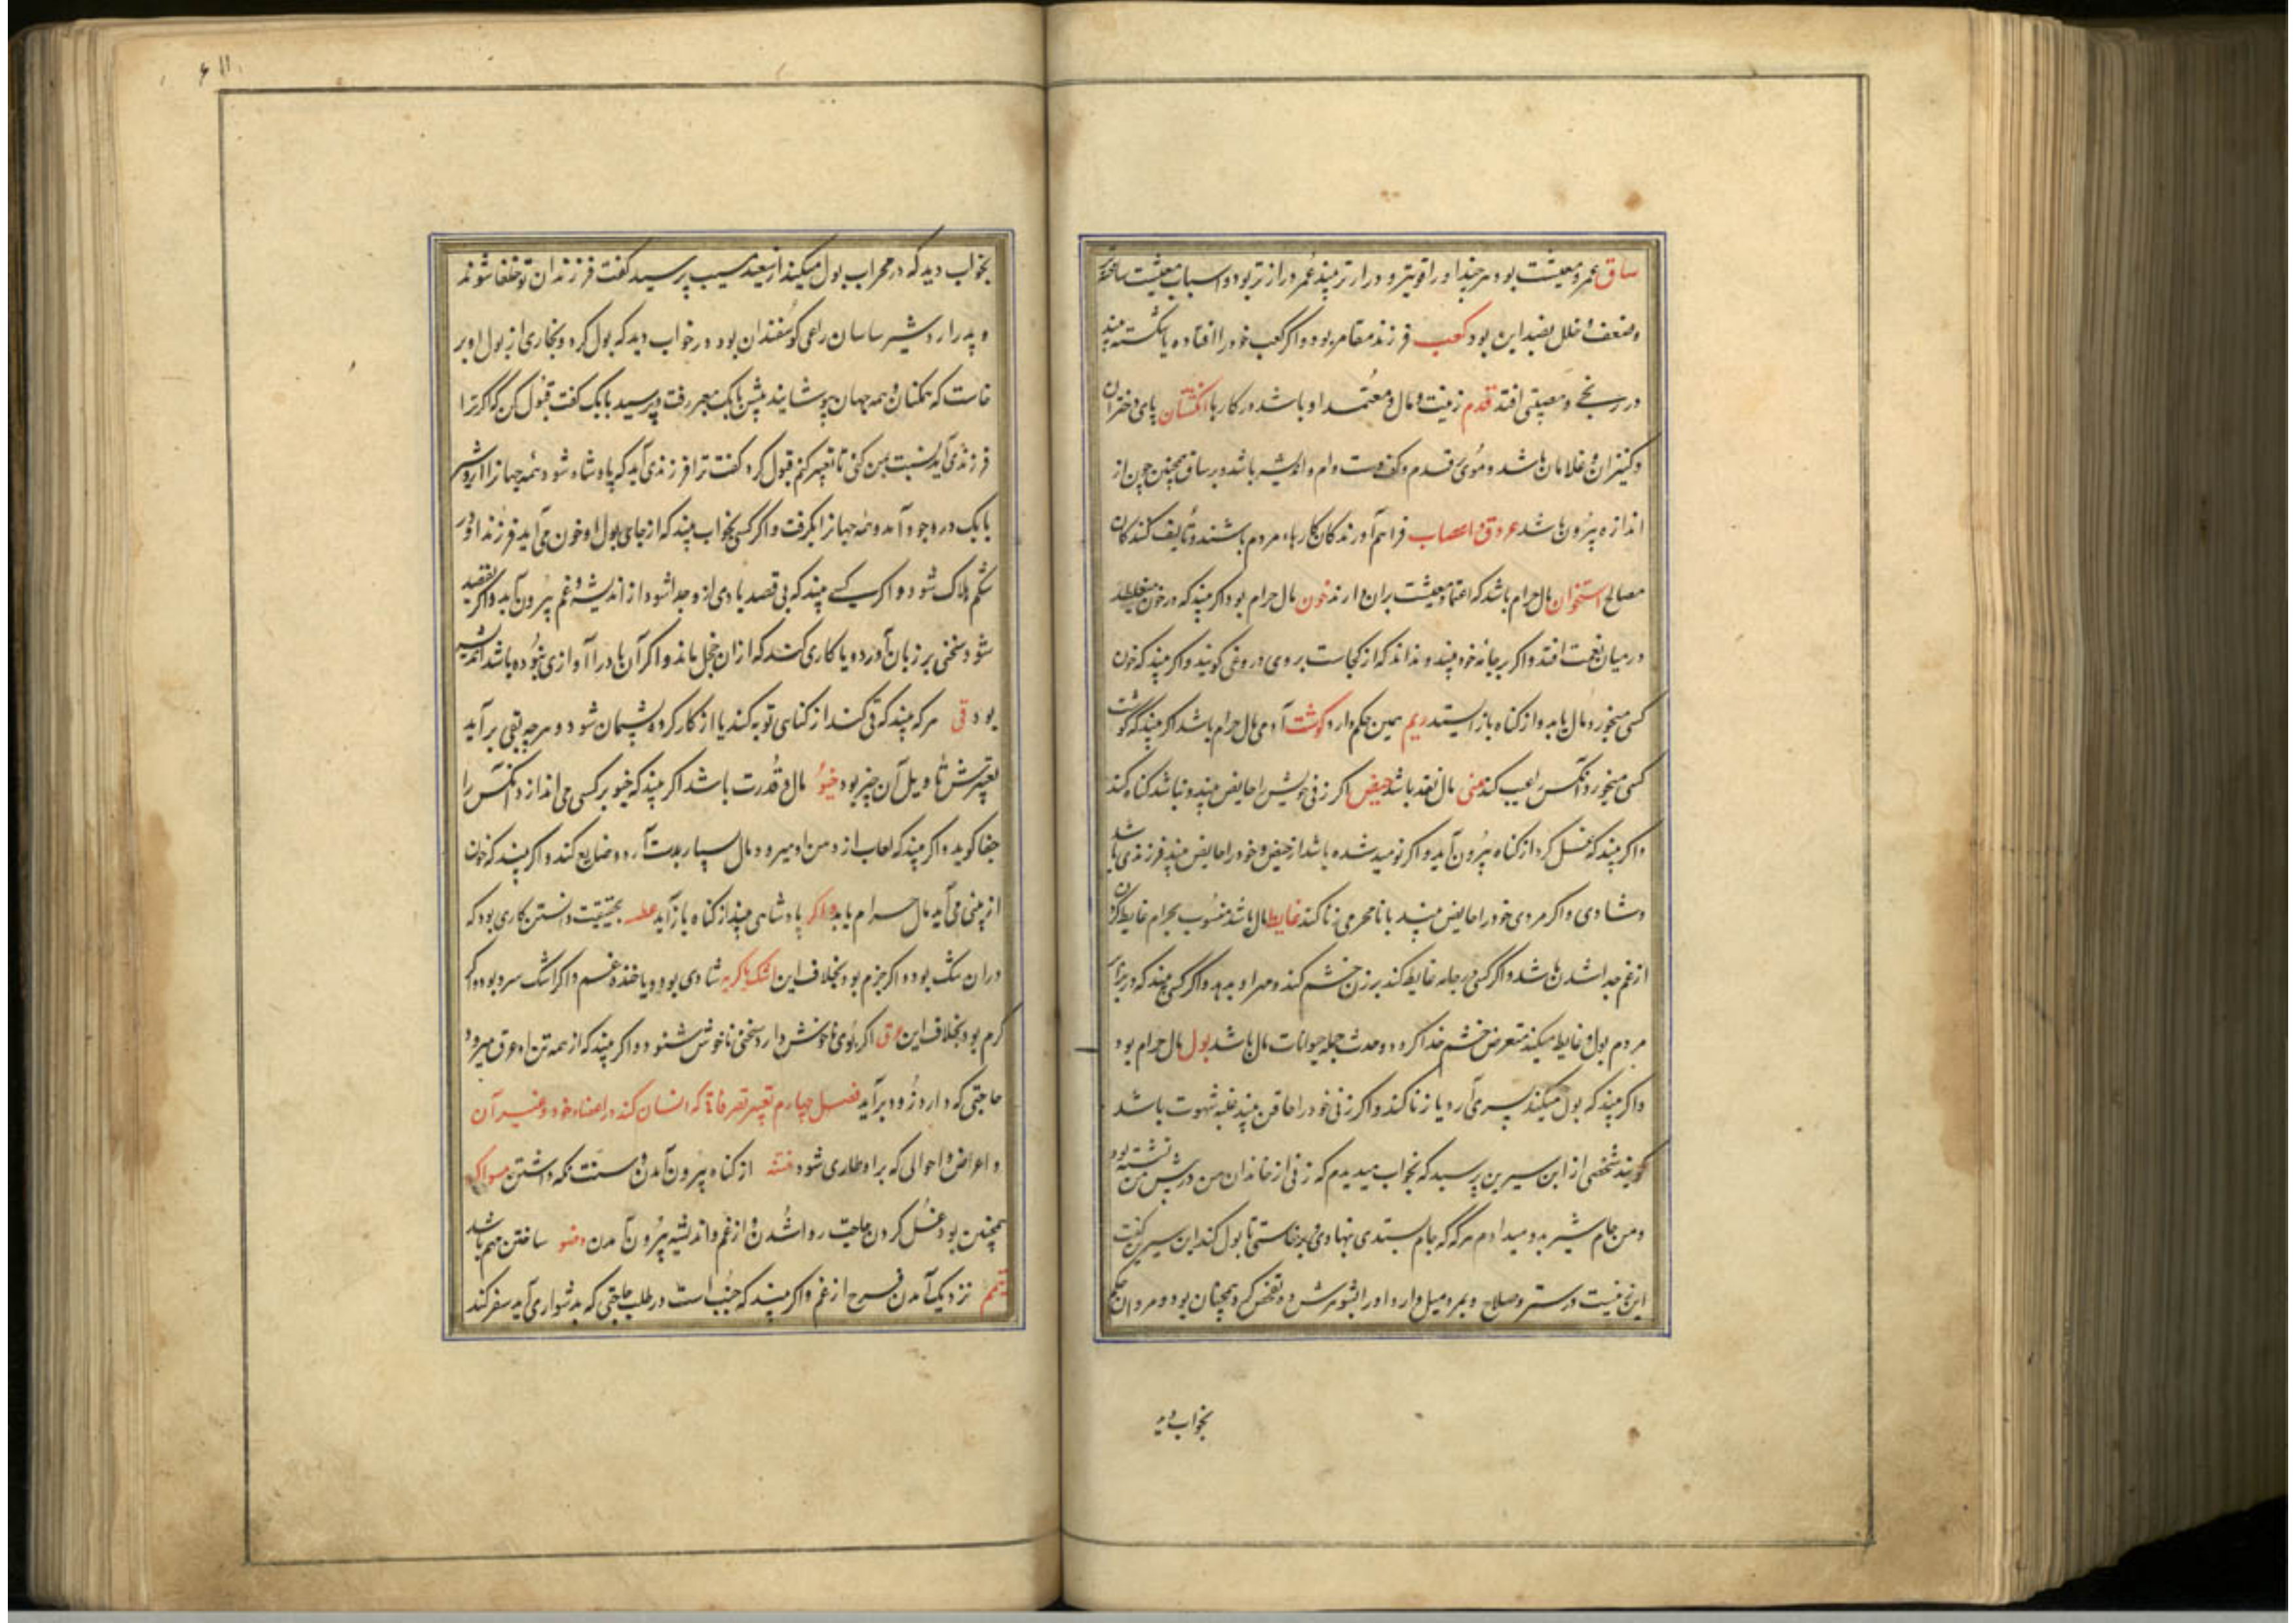 ساق عمر و معیشت بود هر چند او را قوی‌تر و درازتر بیند عمر درازتر بود و اسباب معیشت ساخته‌تر
و ضعف و خلل بضد این بود کعب فرزند مقامر بود و اگر کعب خود را افتاده یا شکسته بیند
در رنج و مصیبتی افتد قدم زینت و مال و معتمد او باشد در کارها انگشتان پای دختران
و کنیزان و غلامان باشد و موی قدم و کف دست وام و اندیشه باشد و بر ساق همچنین چون از
اندازه بیرون باشد عروق و اعصاب فراهم آورندکان کارهاء مردم باشند و تألیف کنندکان
مصالح استخوان مال حرام باشد که اعتماد معیشت بران دارند خون مال حرام بود اکر بیند که در خون می‌غلطد
در میان نعمت افتد و اکر بر جامه خود بیند و نداند که از کجاست بر وی دروغی کویند و اکر بیند که خون
کسی میخورد مال یابد و از کناه باز ایستد ریم همین حکم دارد کوشت آدمی مال حرام باشد اکر بیند که کوشت
کسی میخورد آنکس را عیب کند منی مال نقد باشد حیض اکر زنی خویش را حایض بیند و نباشد کناه کند
و اکر بیند که غسل کرد از کناه بیرون آید و اکر نومید شده باشد از حیض و خود را حایض بیند فرزندی باشد
و شادی و اکر مردی خود را حایض بیند با نامحرمی زنا کند غایط مال باشد منسوب بحرام غایط کردن
از غم جدا شدن باشد و اکر کسی در جامه غایط کند بر زن خشم کند و مهر او بدهد و اکر کسی بیند که در برابر
مردم بول و غایط میکند متعرض خشم خدا کردد و حدث جمله حیوانات مال باشد بول مال حرام بود
و اکر بیند که بول میکند پسری آرد یا زنا کند و اکر زنی خود را حاقن بیند غلبه شهوت باشد
کویند شخصی از ابن سیرین پرسید که بخواب میدیدم که زنی از خاندان من در پیش من نشسته بود
و من جام شیر بدو میدادم هرکه که جام بستدی بنهادی و برخاستی تا بول کند ابن سیرین گفت
این زنیست در ستر و صلاح و بمرد میل دارد او را بشوهرش ده تفحص کرد همچنان بود و مروان حکم
بخواب دید
بخواب دید که در محراب بول میکند از سعید مسیب پرسید کفت فرزندان تو خلفا شوند
و پدر اردشیر ساسان راعی کوسفندان بود در خواب دید که بول کرد و بخاری از بول او بر
خاست که همکنان و همه جهان بپوشانید پیش بابک معبر رفت و پرسید بابک کفت قبول کن که اکر ترا
فرزندی آید نسبت بمن کنی تا تعبیر کنم قبول کرد کفت ترا فرزندی آید که پادشاه شود و همه جهانرا اردشیر
بابک در وجود آمد و همه جهانرا بکرفت و اکر کسی بخواب بیند که از جای بول او خون می‌آید فرزند او در
شکم هلاک شود و اکر کسی بیند که بی قصد بادی ازو جدا شود از اندیشه و غم بیرون آید و اکر بقصد
شود سخنی بر زبان آورد و یا کاری کند که ازان خجل ماند و اکر آن باد را آوازی نبوده باشد اندیشه
بود قی هر که بیند که قی کند از کناهی توبه کند یا از کار کرده پشیمان شود و هر چه بقی بر آید
تعبیرش تاویل آن چیز بود خیو مال و قدرت باشد اکر بیند که خیو بر کسی می‌اندازد آنکس را
جفا کوید و اکر بیند که لعاب از دهن او میرود مال بسیار بدست آرد و ضایع کند و اکر بیند که خون
از بینی می‌آید مال حرام یابد و اکر پادشاهی بیند از کناه باز آید عطسه بحقیقت دانستن کاری بود که
دران شک بود و اکر جزم بود بخلاف این اشک یا کریه شادی بود و یا خنده غم و اکر اشک سرد بود و اکر
کرم بود بخلاف این عرق اکر بوی ناخوش دارد سخنی ناخوش شنود و اکر بیند که از همه تن او عرق میرود
حاجتی که دارد زود بر آید فصل چهارم تعبیر تصرفاتی که انسان کند در اعضاء خود و غیر آن
و اعراض و احوالی که برو طاری شود ختنه از کناه بیرون آمدن و سنت نکه داشتن مسواک
همچنین بود غسل کردن حاجت روا شدن و از غم و اندیشه بیرون آمدن وضو ساختن مهم باشد
تیمم نزدیک آمدن فرج از غم و اکر بیند که جنب است در طلب حاجتی که بدشواری آید سفر کند